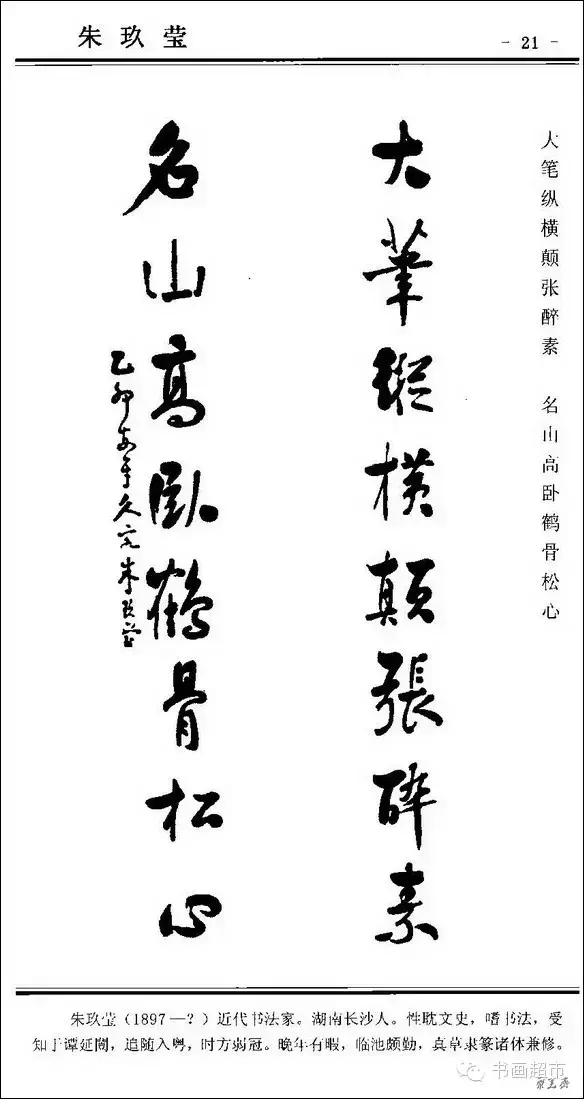 朱玖莹
- 21 -
大笔纵横颠张醉素 名山高卧鹤骨松心
大筆縱橫顛張醉素
名山高臥鶴骨松心
乙卯 于久完朱玖瑩
朱玖莹（1897—？）近代书法家。湖南长沙人。性耽文史，嗜书法，受
知于谭延闿，追随入粤，时方弱冠。晚年有暇，临池颇勤，真草隶篆诸体兼修。
书画超市